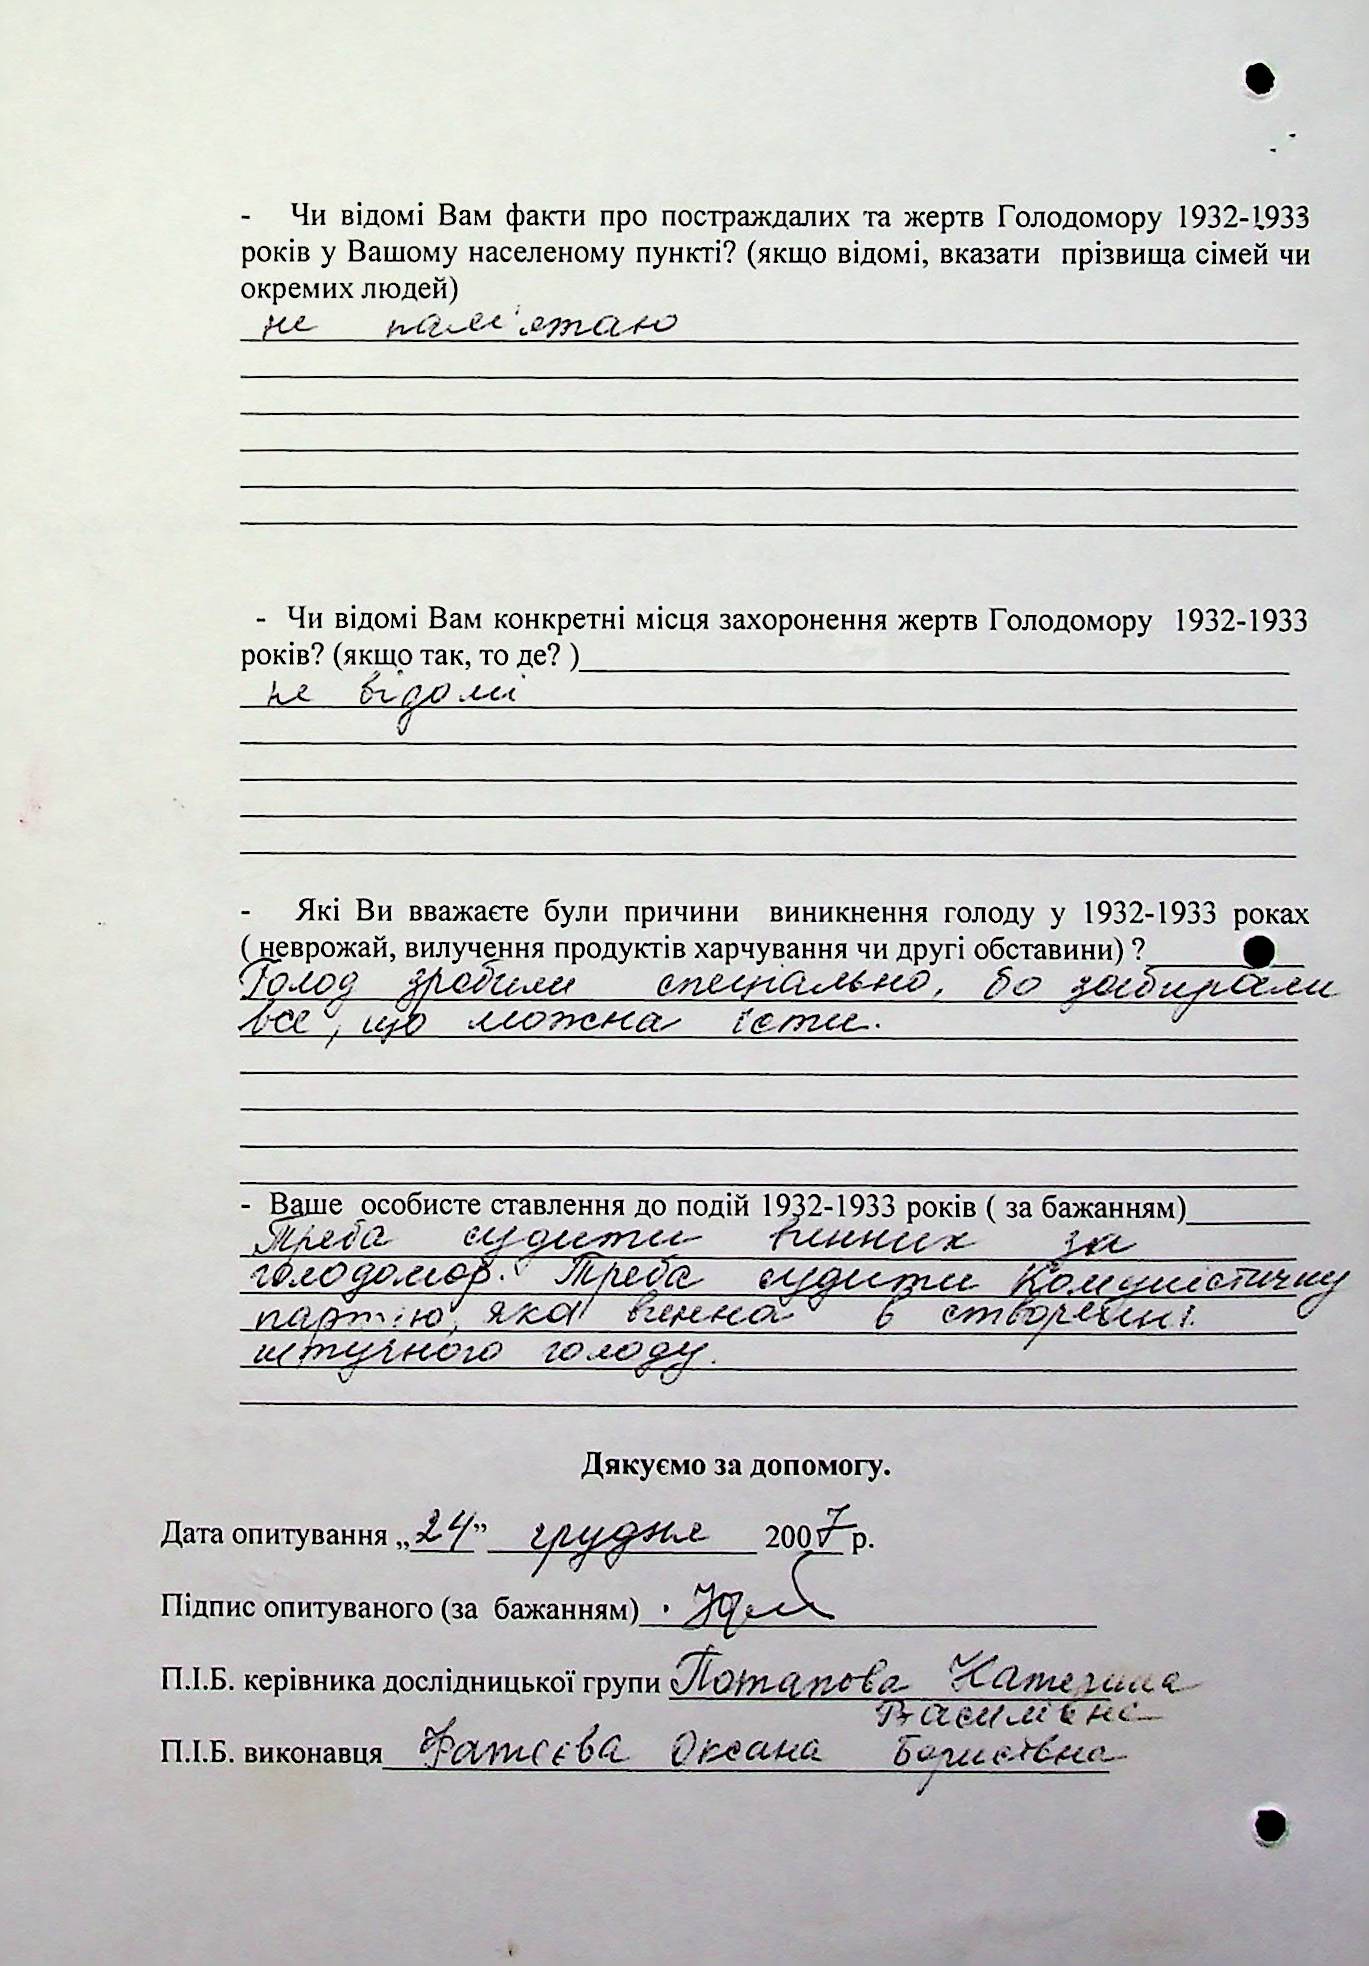 - Чи відомі Вам факти про постраждалих та жертв Голодомору 1932-1933
років у Вашому населеному пункті? (якщо відомі, вказати прізвища сімей чи
окремих людей)
не пам'ятаю
- Чи відомі Вам конкретні місця захоронення жертв Голодомору 1932-1933
років? (якщо так, то де? )
не відомі
- Які Ви вважаєте були причини виникнення голоду у 1932-1933 роках
( неврожай, вилучення продуктів харчування чи другі обставини) ?
Голод зробили спеціально, бо забирали
все, що можна їсти.
- Ваше особисте ставлення до подій 1932-1933 років ( за бажанням)
Треба судити винних за
голодомор. Треба судити Комуністичну
партію, яка винна в створенні
штучного голоду.
Дякуємо за допомогу.
Дата опитування „24” грудня 2007 р.
Підпис опитуваного (за бажанням)
П.І.Б. керівника дослідницької групи Потапова Катерина
Василівна
П.І.Б. виконавця Фатєєва Оксана Борисівна